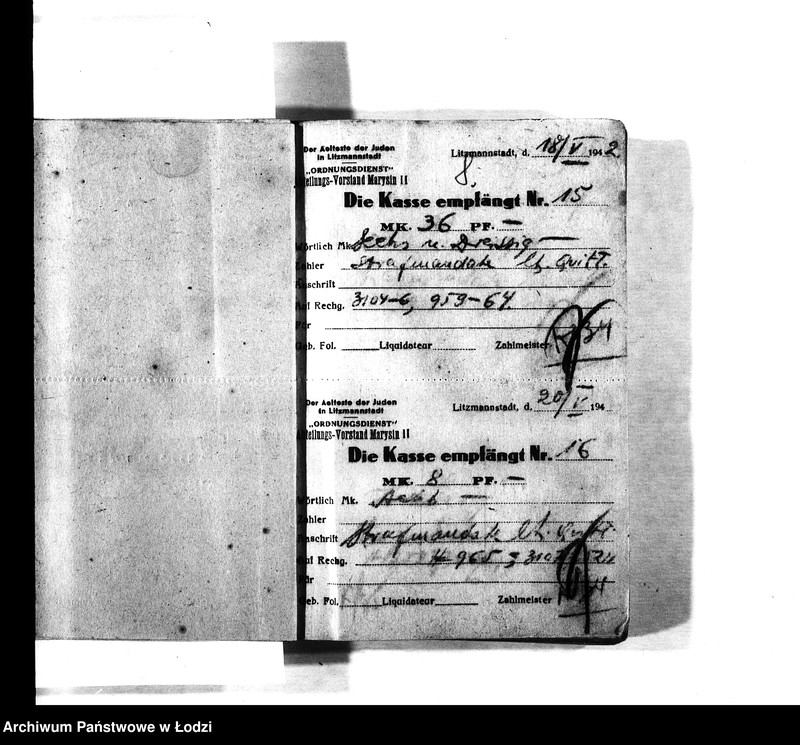 Der Aelteste der Juden
in Litzmannstadt
„ORDNUNGSDIENST“
Abteilungs-Vorstand Marysin II
Litzmannstadt, d. 18/V 1942
Die Kasse empfängt Nr. 15
MK. 36 PF. —
Wörtlich Mk. Sechs u. Dreissig —
Zahler Strafmandate lt. Quitt.
Anschrift
Auf Rechg. 3104-6, 959-64.
Für
Geb. Fol. Liquidateur Zahlmeister
Der Aelteste der Juden
in Litzmannstadt
„ORDNUNGSDIENST“
Abteilungs-Vorstand Marysin II
Litzmannstadt, d. 20/V 194
Die Kasse empfängt Nr. 16
MK. 8 PF. —
Wörtlich Mk. Acht —
Zahler
Anschrift Strafmandate lt. Quitt.
Auf Rechg. 965
Für
Geb. Fol. Liquidateur Zahlmeister
Archiwum Państwowe w Łodzi